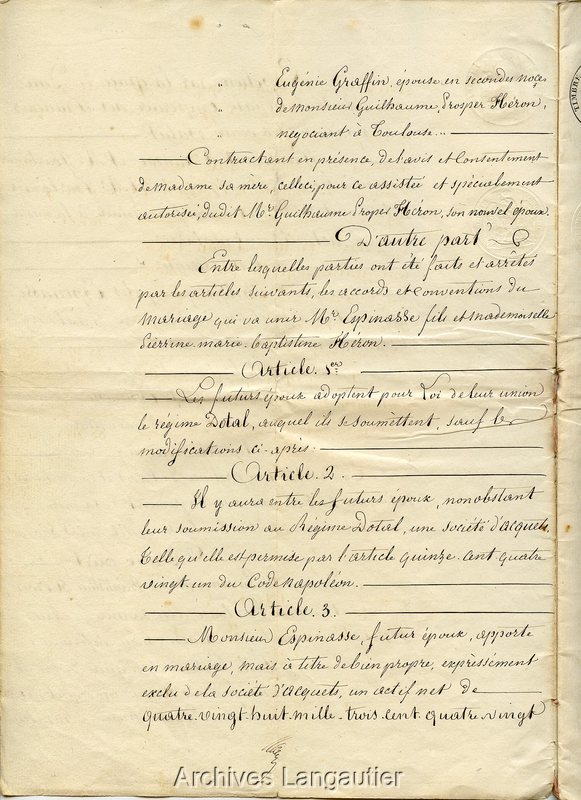 " Eugénie Graffin, épouse en secondes noces
" de Monsieur Guilhaume, Prosper Héron,
" négociant à Toulouse..
Contractant en présence, de l'avis et Consentiment
de Madame sa mère, celle ci, pour ce assistée et spécialement
autorisée, dudit Mr. Guilhaume Prosper Héron, son nouvel époux.
D'autre part
Entre lesquelles parties ont été faits et arrêtés
par les articles suivants, les accords et conventions du
mariage qui va unir Mr. Espinasse fils et mademoiselle
Pierrine. marie. baptistine Héron.
Article. 1er
Les futurs époux adoptent pour Loi de leur union
le régime Dotal, auquel ils se soumettent, sauf les
modifications ci-après.
Article. 2.
Il y aura entre les futurs époux, nonobstant
leur soumission au Régime Dotal, une société d'acquets.
Telle qu'elle est permise par l'article quinze. cent quatre
vingt. un du Code napoléon.
Article. 3.
Monsieur Espinasse, futur époux, apporte
en mariage, mais à titre de bien propre, expressément
exclu de la société d'acquets, un actif net de
quatre. vingt. huit. mille. trois. cent. quatre. vingt
TIMBRE
Archives Langautier